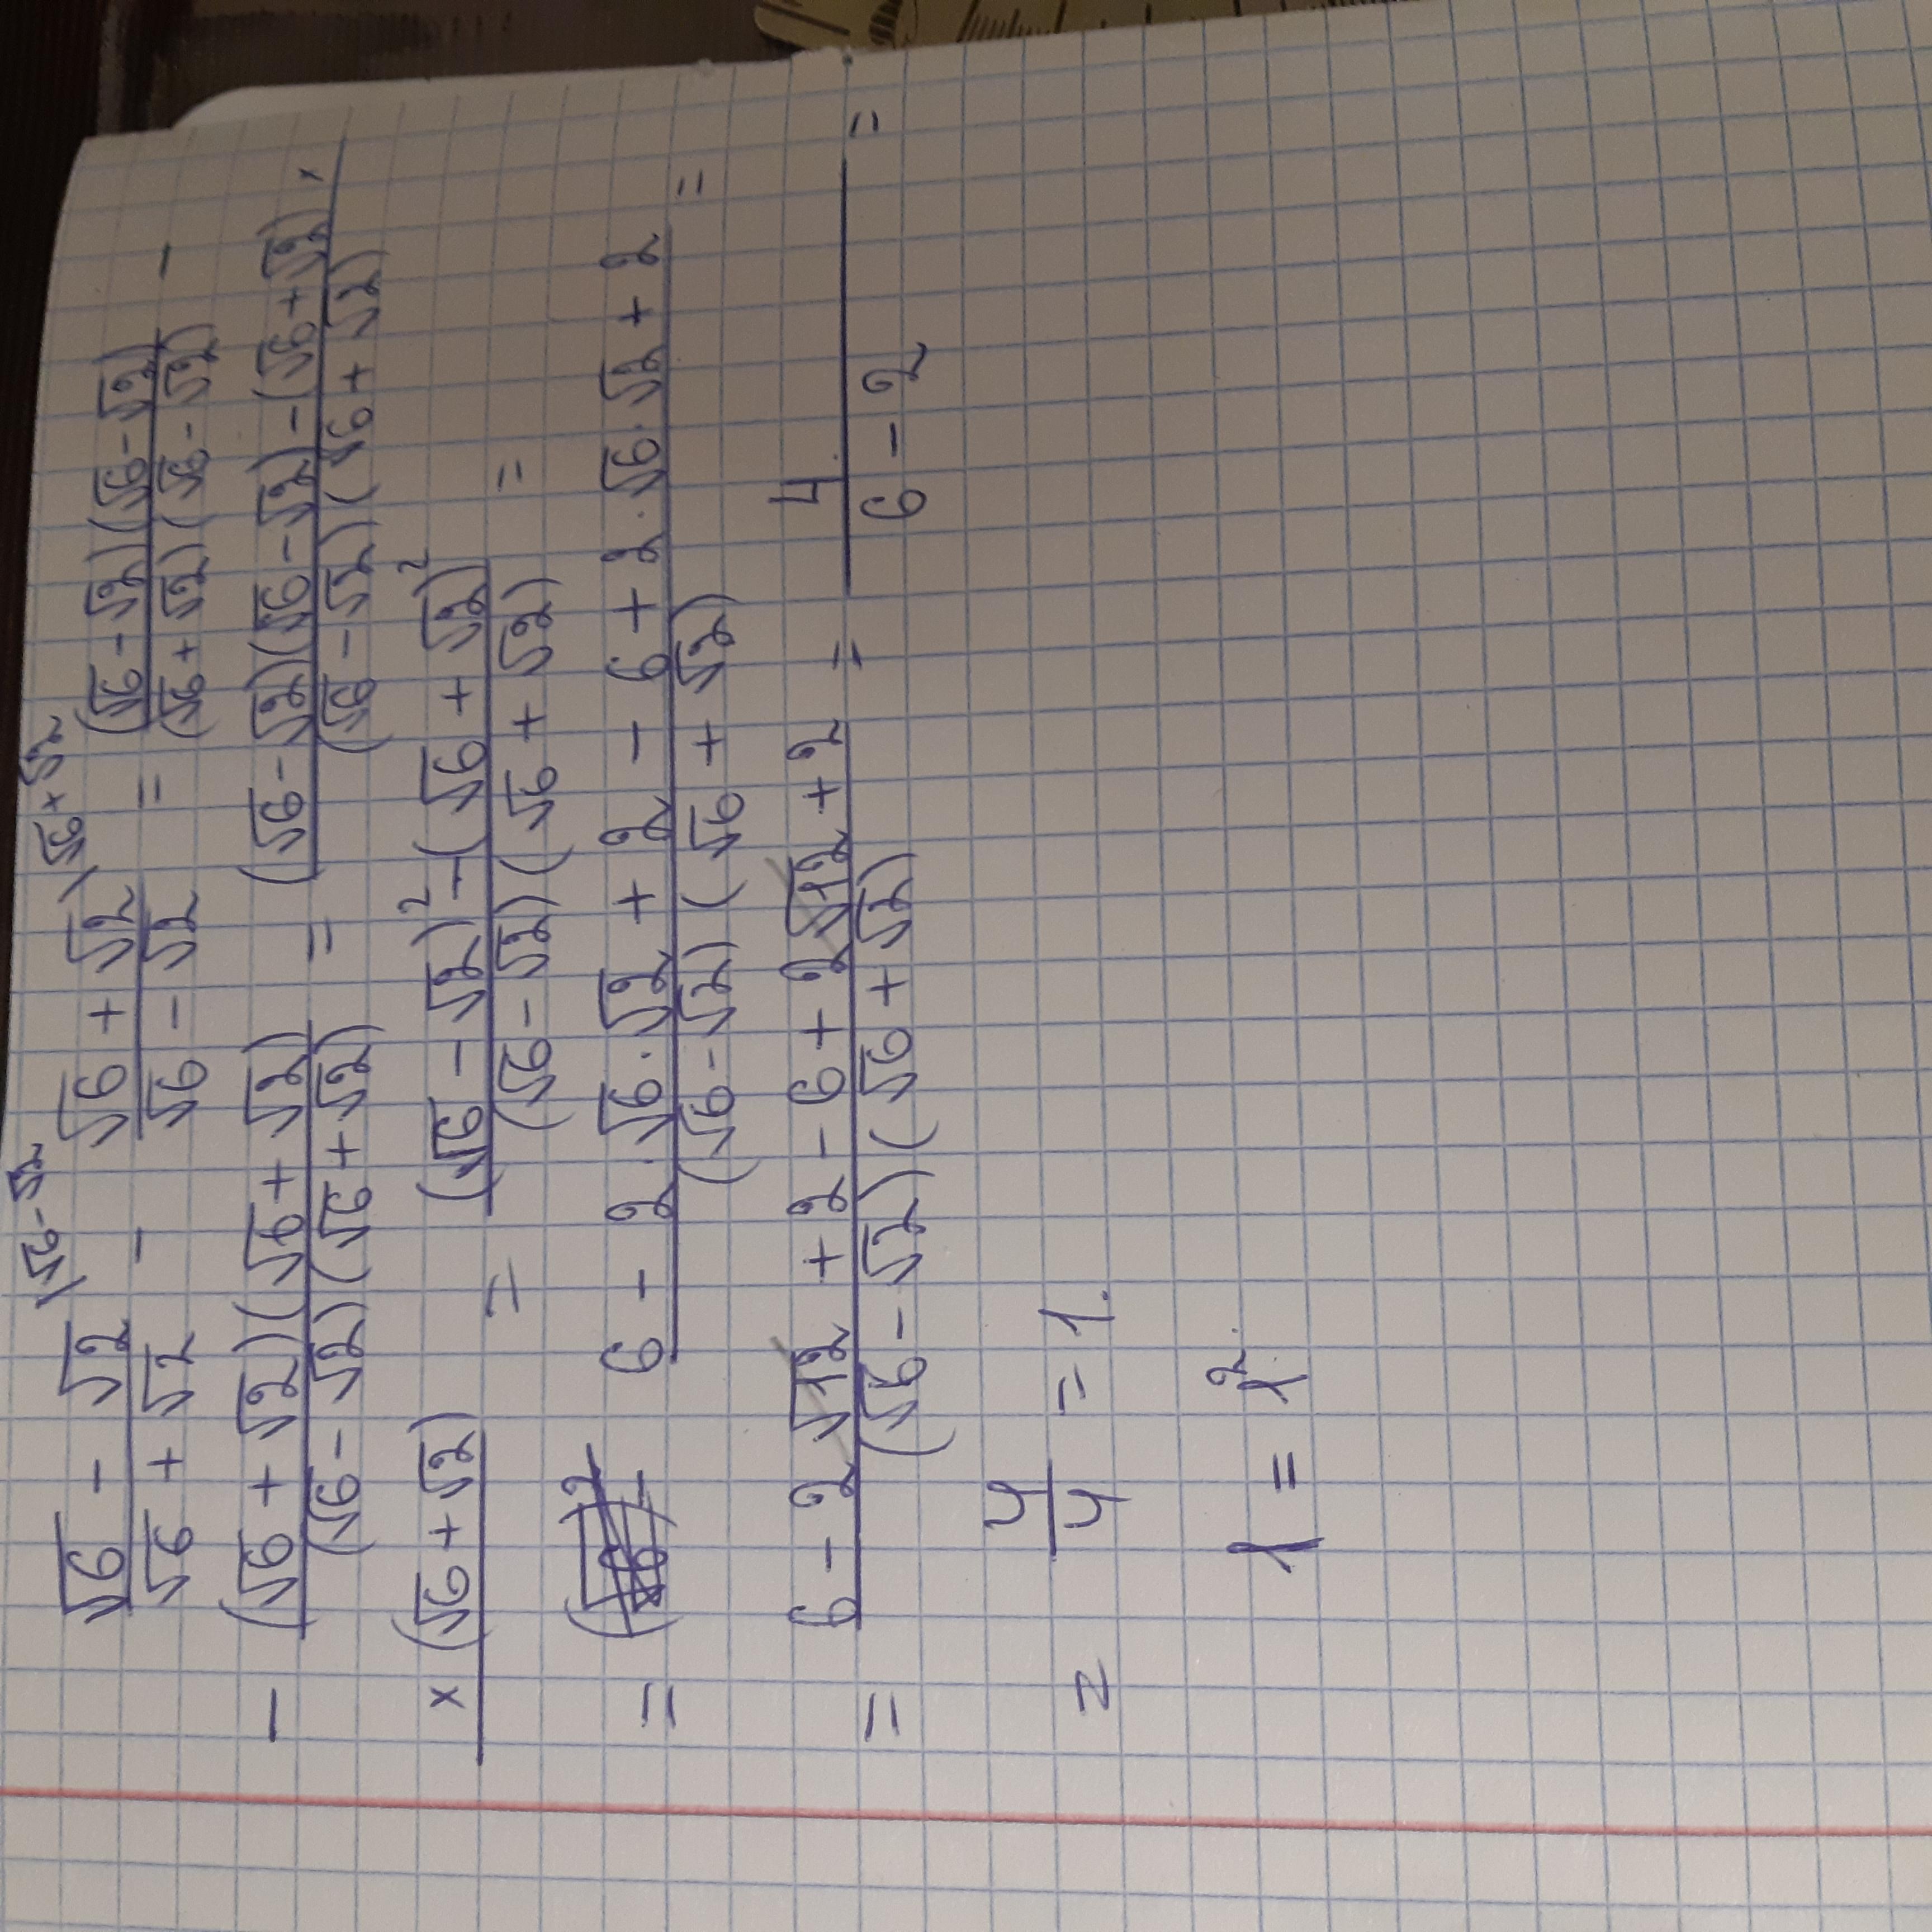 (√6 - √2)/(√6 + √2) \√6-√2 - (√6 + √2)/(√6 - √2) \√6+√2 = (√6-√2)(√6-√2)/(√6+√2)(√6-√2) -
- (√6 + √2)(√6 + √2)/(√6 - √2)(√6 + √2) = (√6 - √2)(√6 - √2) - (√6 + √2) ×/(√6 - √2)(√6 + √2)
× (√6 + √2) = (√6 - √2)² - (√6 + √2)²/(√6 - √2)(√6 + √2) =
= 6 - 2·√6·√2 + 2 - 6 + 2·√6·√2 + 2/(√6 - √2)(√6 + √2) =
= 6 - 2√12 + 2 - 6 + 2√12 + 2/(√6 - √2)(√6 + √2) = 4/(6 - 2) =
= 4/4 = 1.
1 = 1².